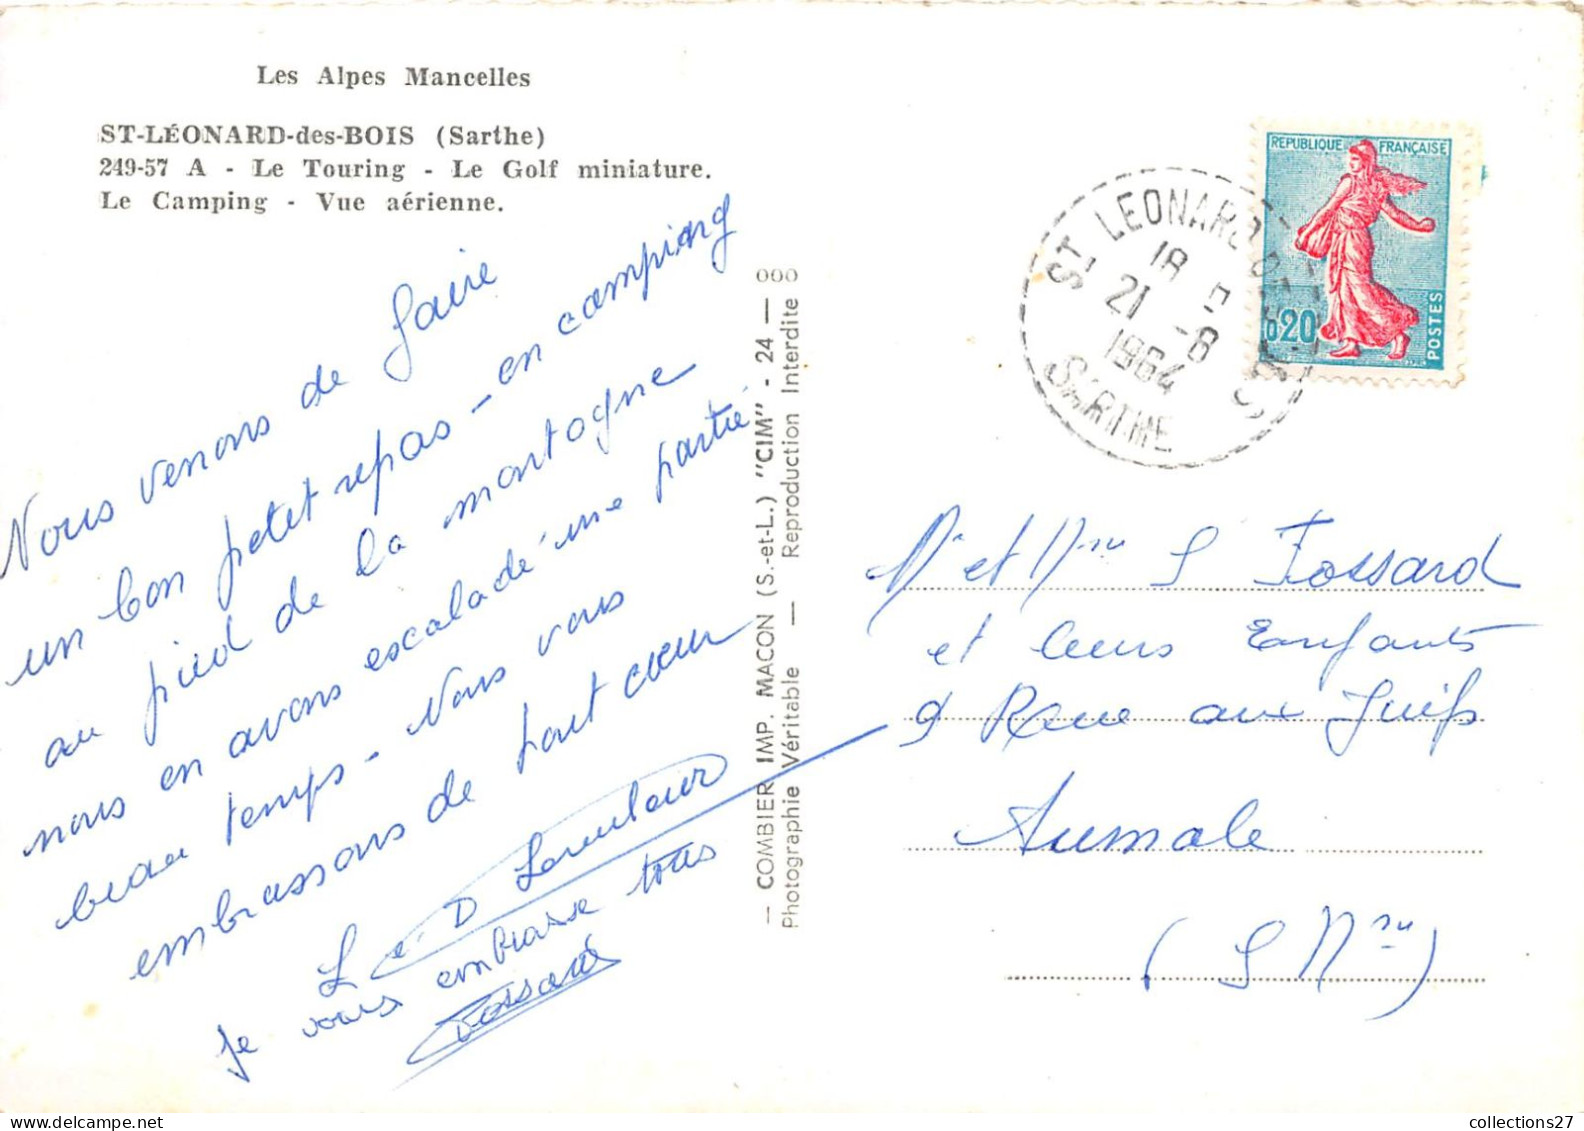 Les Alpes Mancelles
ST-LÉONARD-des-BOIS (Sarthe)
249-57 A - Le Touring - Le Golf miniature.
Le Camping - Vue aérienne.
Nous venons de faire
un bon petit repas - en camping
au pied de la montagne
nous en avons escaladé une partie
beau temps - Nous vous
embrassons de tout cœur
L et D
je vous embrasse tous
Fossard
— COMBIER IMP. MACON (S.-et-L.) "CIM" - 24 — 000
Photographie Véritable — Reproduction Interdite
REPUBLIQUE FRANÇAISE
0,20
POSTES
ST LEONARD DES BOIS
18 H
21 - 8
1964
SARTHE
M et Mme S Fossard
et leurs Enfants
9 Rue aux Juifs
Aumale
(S Mme)
collections27